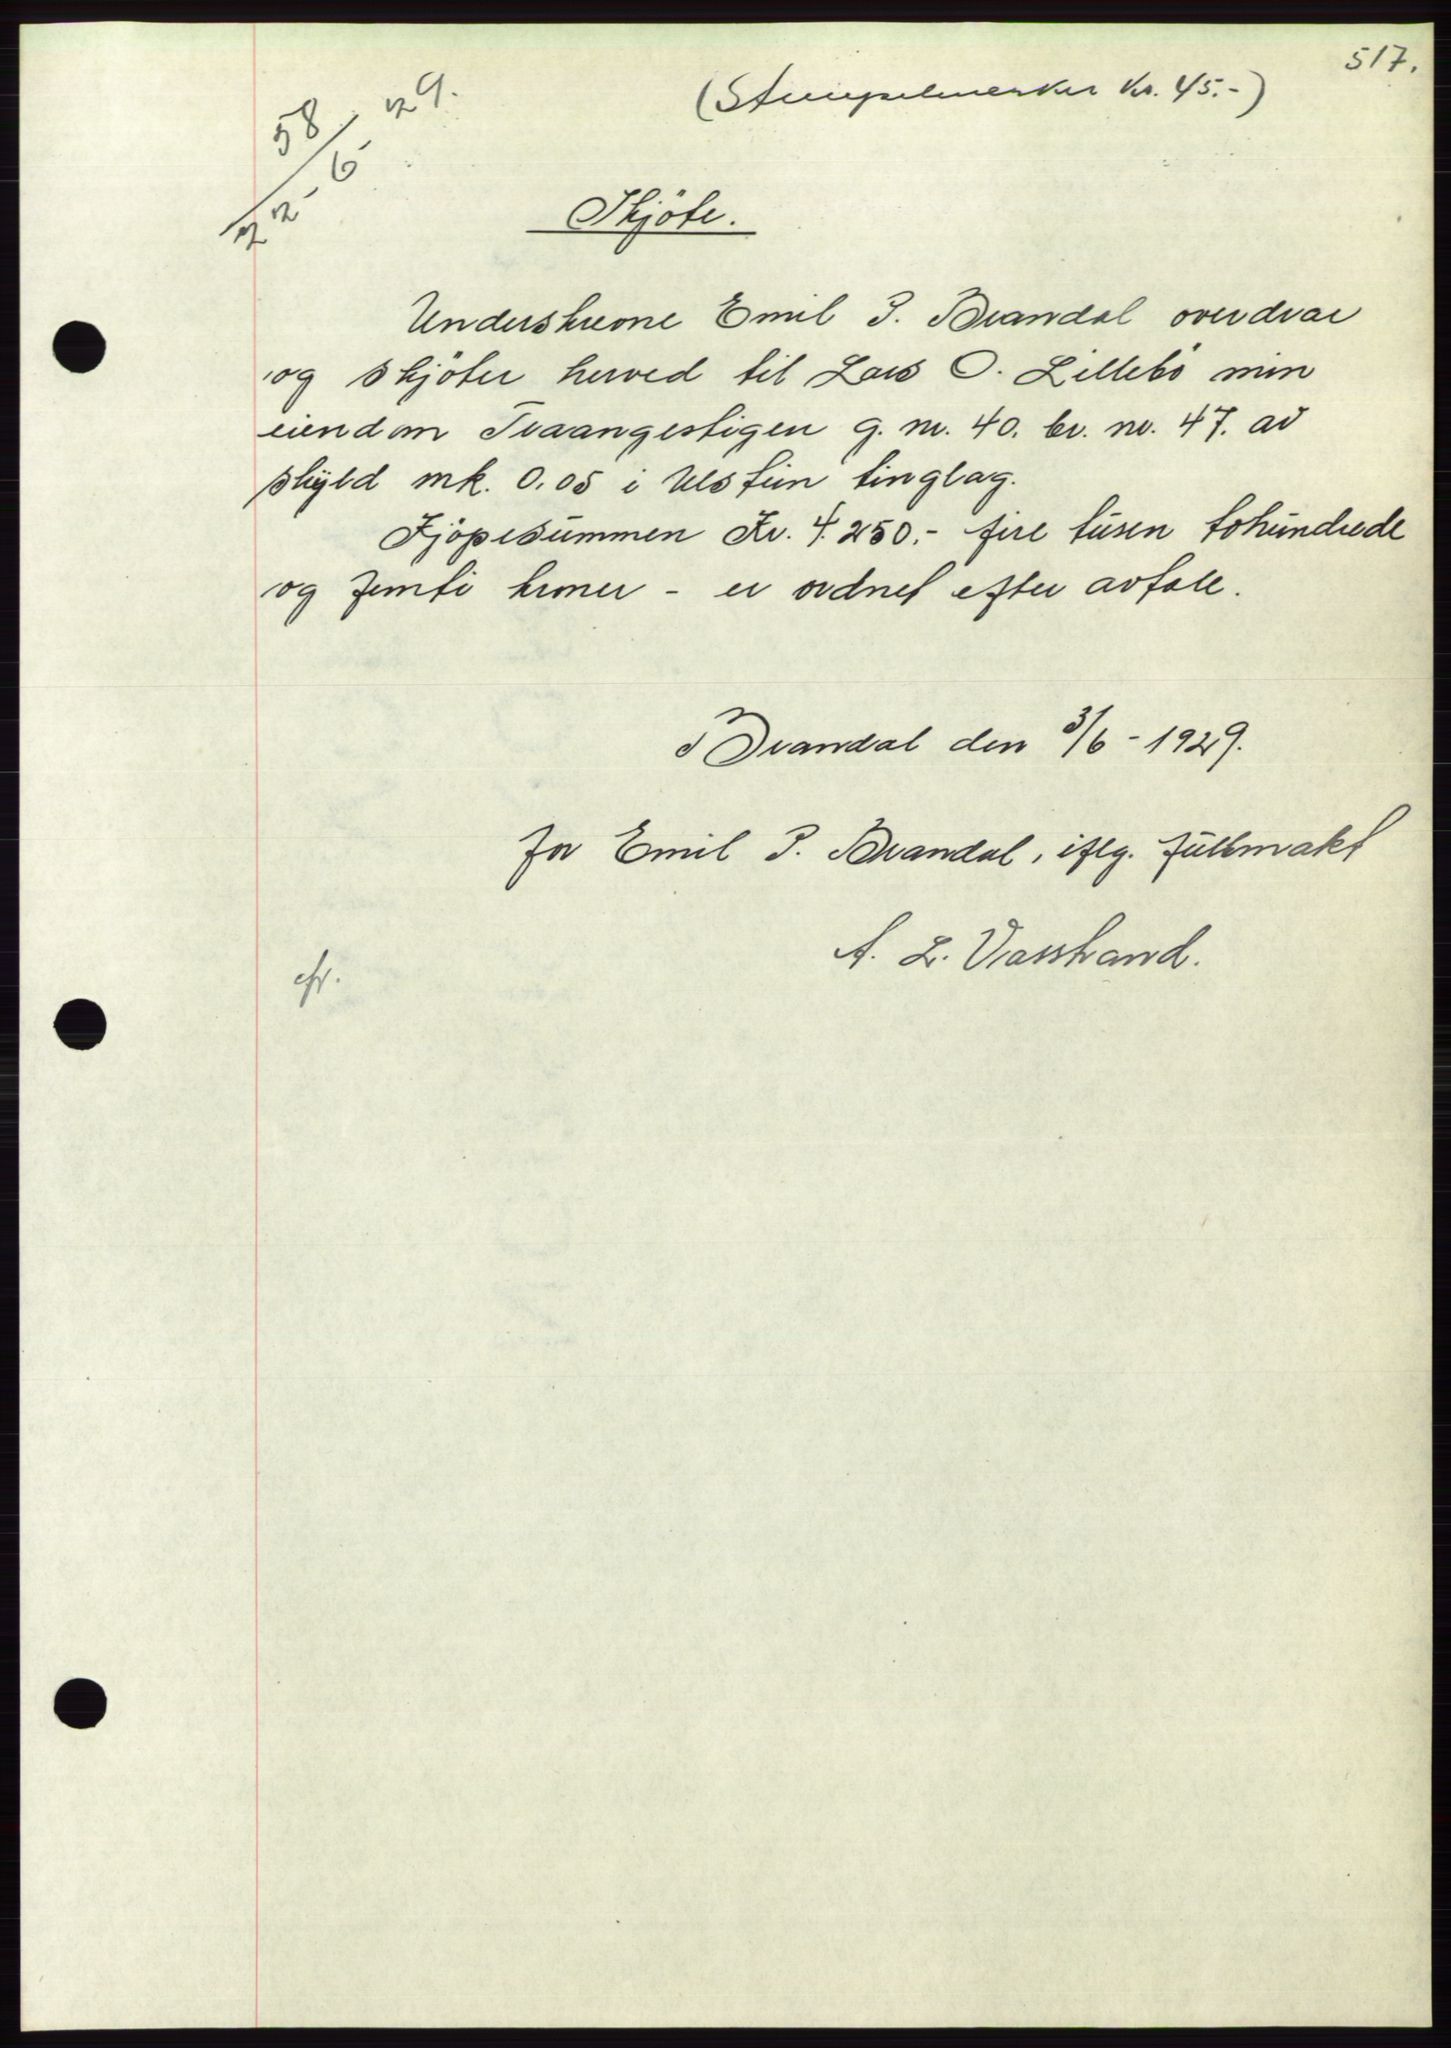 517.
(Stempelmerker kr. 45.-)
58/22-6-29.
Skjöte.
Underskrevne Emil P. Brandal overdrar
og skjöter herved til Lars O. Lillebö min
eiendom Traangestigen g. nr. 40. br. nr. 47. av
skyld mk. 0.05 i Ulstein tinglag.
Kjöpesummen Kr. 4.250.- fire tusen tohundrede
og femti kroner - er ordnet efter avtale.
Brandal den 3/6-1929.
for Emil P. Brandal, iflg. fullmakt
A. L. Vasstrand.
cfr.